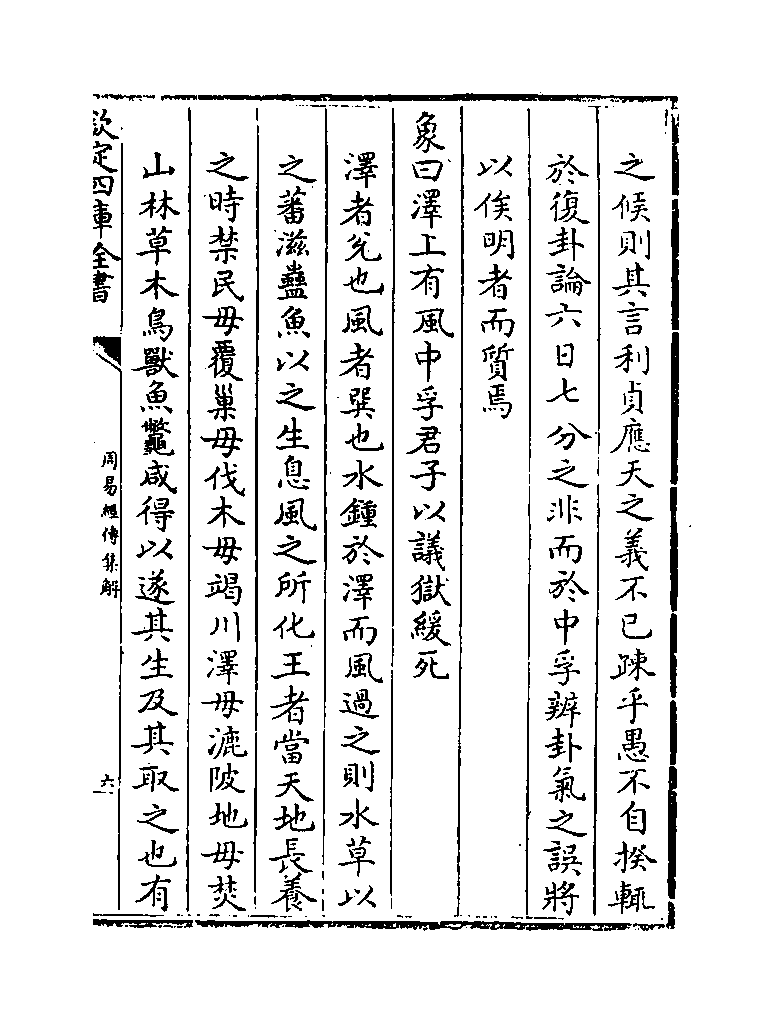 之候則其言利貞應天之義不已疎乎愚不自揆輒
於復卦論六日七分之非而於中孚辨卦氣之誤將
以俟明者而質焉
象曰澤上有風中孚君子以議獄緩死
澤者兌也風者巽也水鍾於澤而風過之則水草以
之蕃滋蠱魚以之生息風之所化王者當天地長養
之時禁民毋覆巢毋伐木毋竭川澤毋漉陂地毋焚
山林草木鳥獸魚鼈咸得以遂其生及其取之也有
欽定四庫全書
周易經傳集解
六